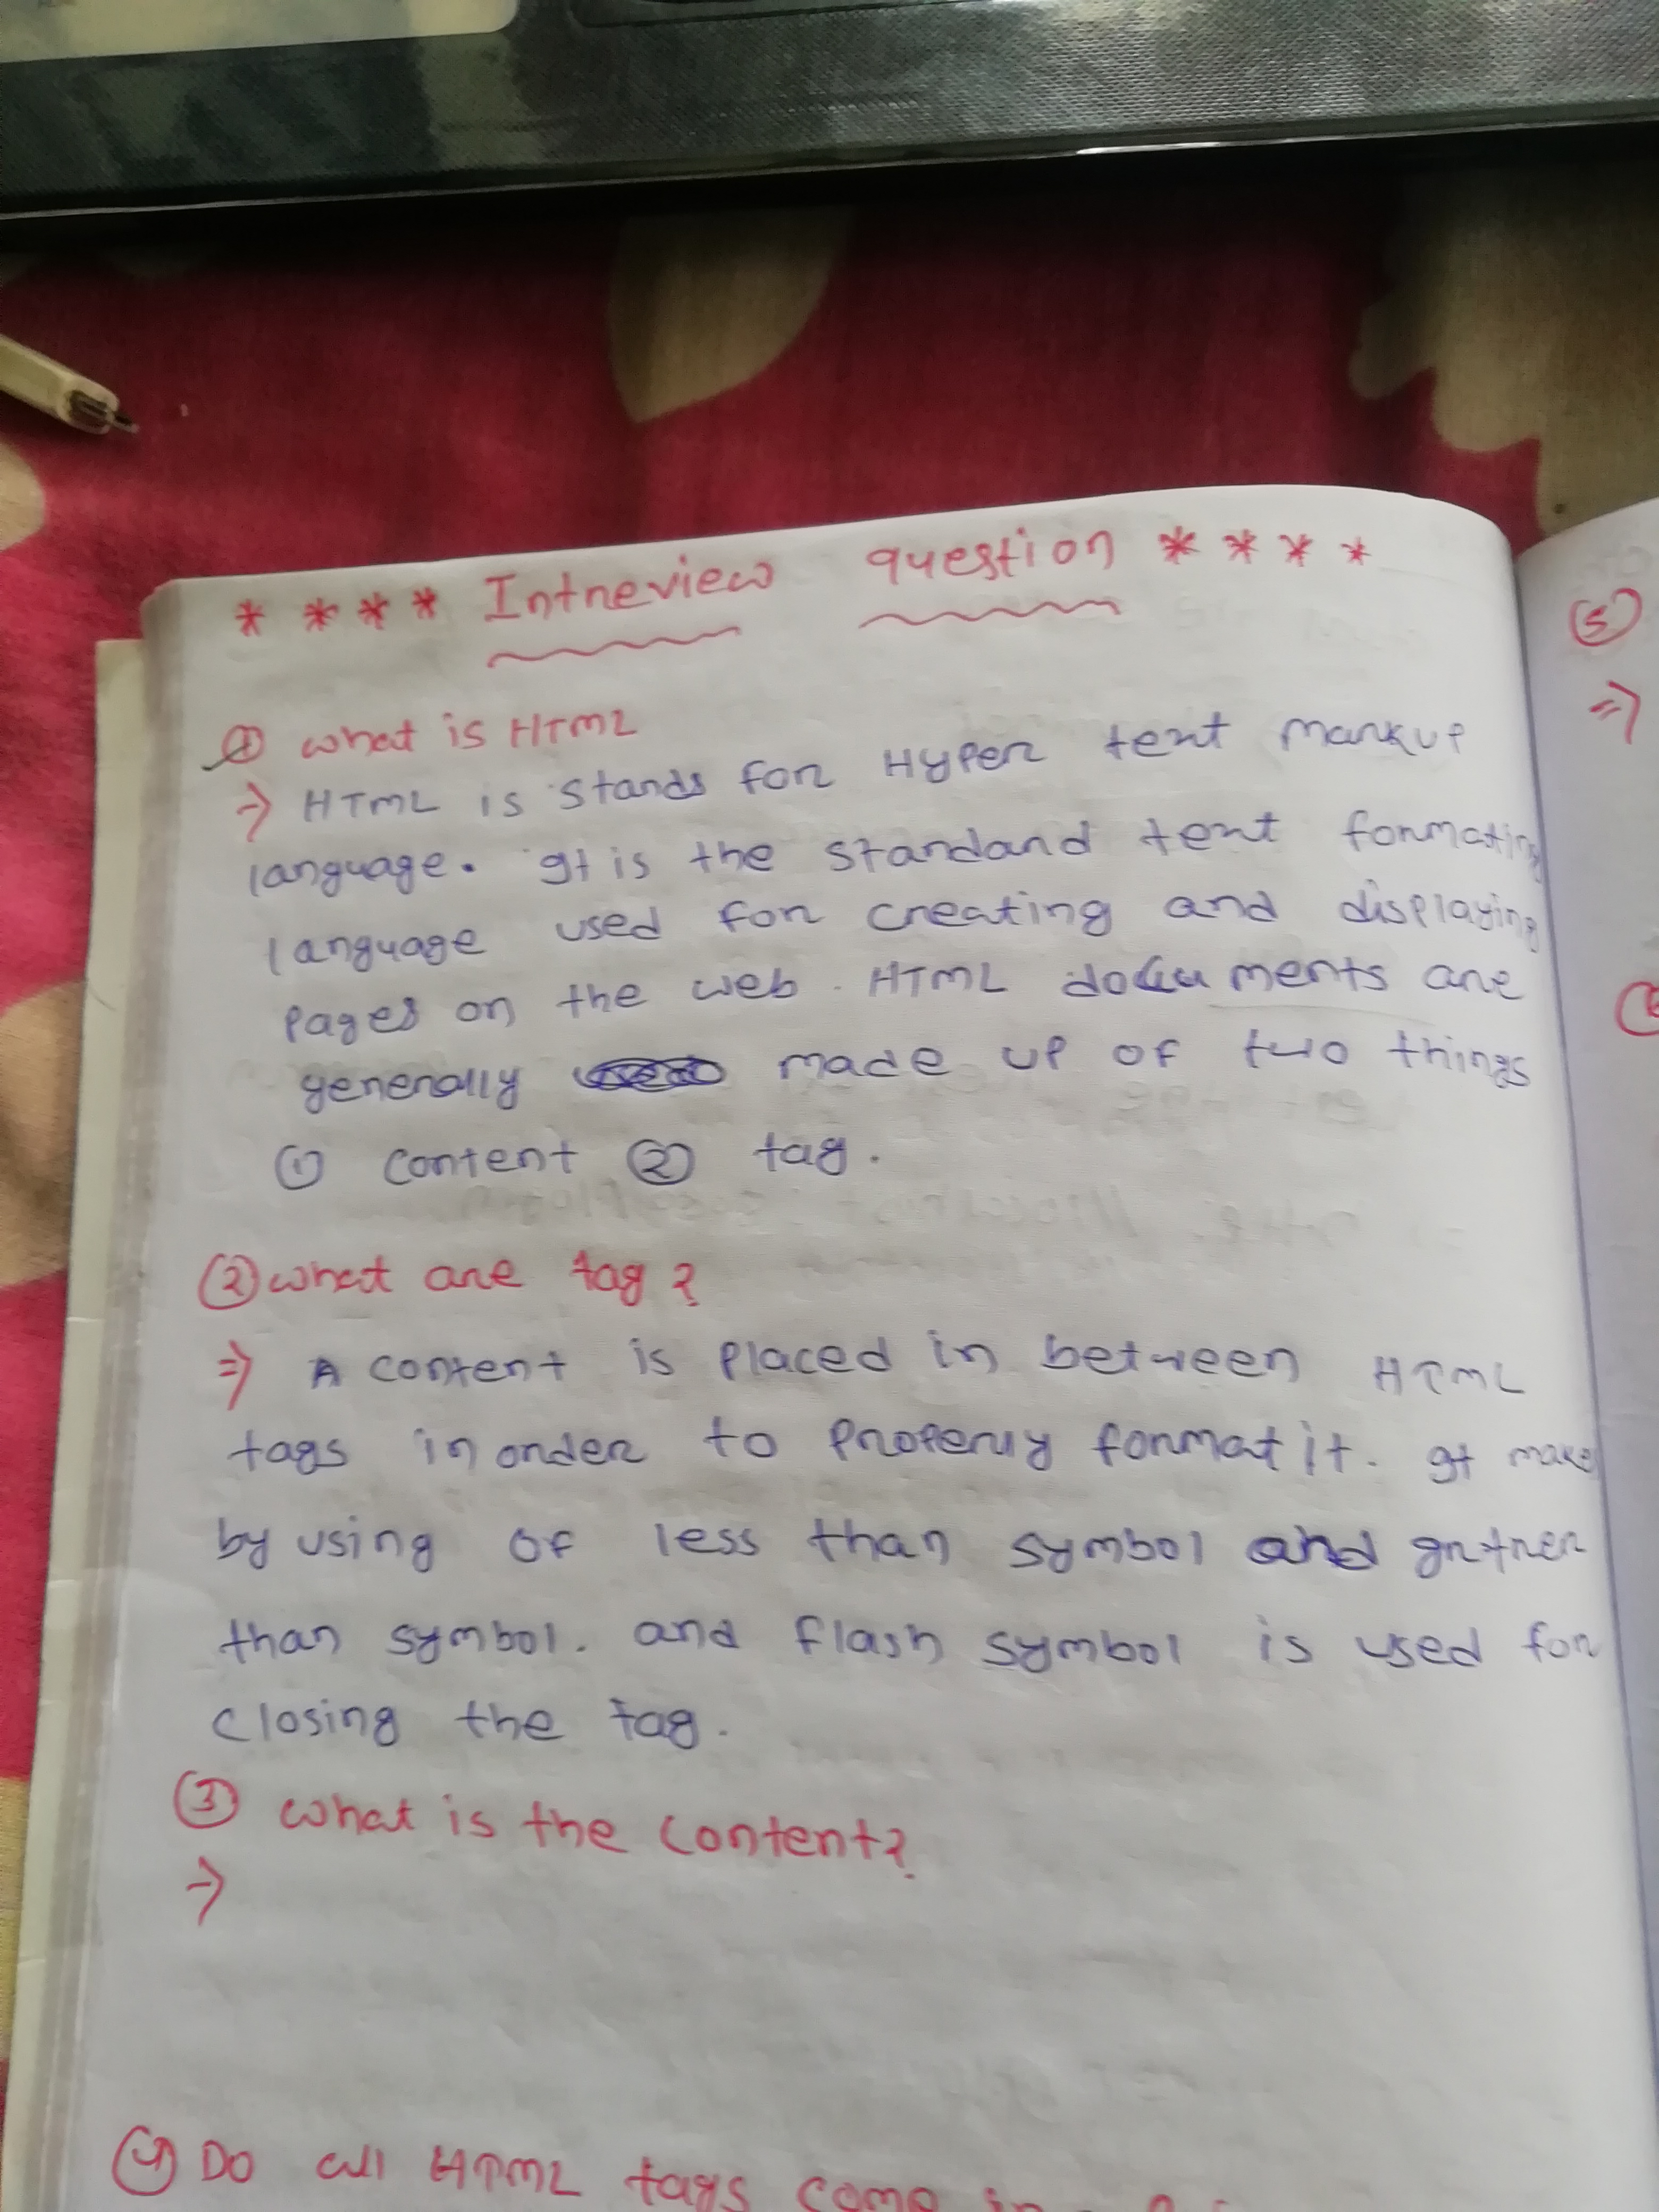 **** Intreview question ****
① what is HTML
→ HTML is stands for Hyper text markup
language. It is the standard text formating
language used for creating and displaying
pages on the web. HTML documents are
generally made up of two things
① content ② tag.
② what are tag?
⇒ A content is placed in between HTML
tags in order to properly format it. It make
by using of less than symbol and grtrer
than symbol. and flash symbol is used for
closing the tag.
③ what is the content?
→
④ Do all HTML tags come in
⑤
⇒